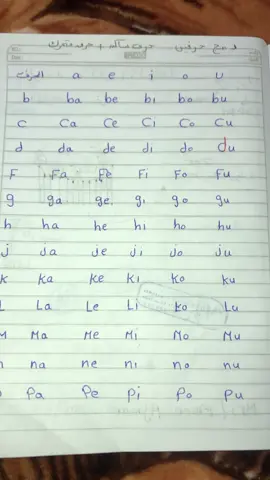 دمج حرفين حرف ساكن + حرف متحرك
الحرف a e i o u
b ba be bi bo bu
c Ca Ce Ci Co Cu
d da de di do du
F Fa Fe Fi Fo Fu
g ga ge. gi go gu
h ha he hi ho hu
j Ja je ji jo ju
k ka ke ki ko ku
L La Le Li Lo Lu
M Ma Me Mi Mo Mu
n na ne ni no nu
Pa Pe Pi Po Pu